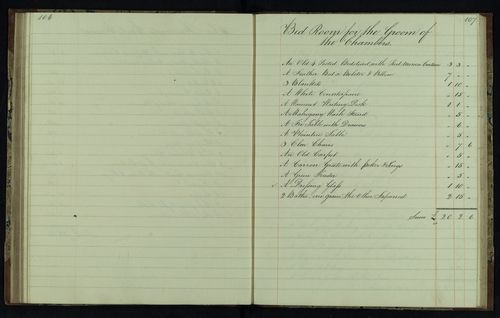 106
107
Bed Room for the Groom of
the Chambers.
An Old 4 Posted Bedstead with Red Moreen Curtains 3 3 -
A Feather Bed a Bolster & Pillow 7 - -
3 Blankets 1 10 -
A White Counterpane - 15 -
A Wainscot Writing Desk 1 1 -
A Mahogany Wash Stand - 5 -
A Fir Table with Drawers - 6 -
A Wainscot Table - 5 -
3 Elm Chairs - 7 6
An Old Carpet - 5 -
A Carron Grate with Poker & Tongs - 15 -
A Green Fender - 5 -
A Dressing Glass 1 10 -
2 Baths, one green, the Other Japanned 2 15 -
Sum £ 20 2 6